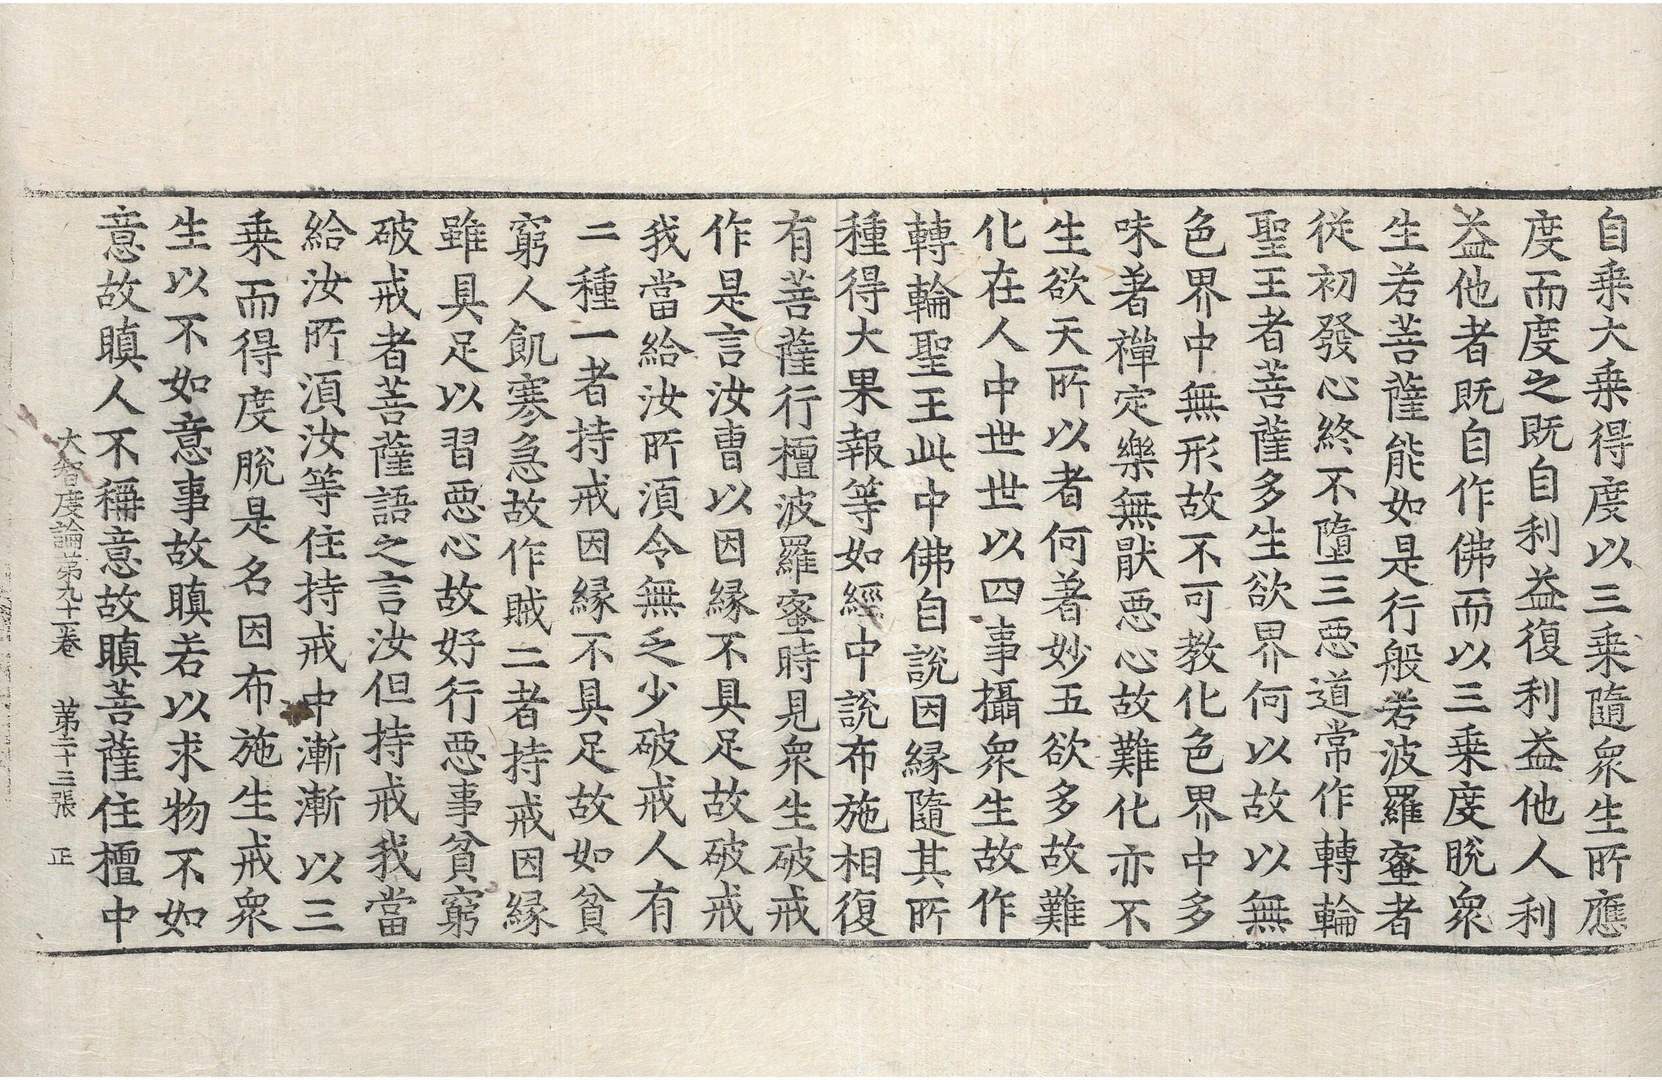 自乗大乗得度以三乗隨衆生所應
度而度之既自利益復利益他人利
益他者既自作佛而以三乗度脱衆
生若菩薩能如是行般若波羅蜜者
従初發心終不墮三悪道常作轉輪
聖王者菩薩多生欲界何以故以無
色界中無形故不可教化色界中多
味著禪定樂無猒悪心故難化亦不
生欲天所以者何著妙五欲多故難
化在人中世世以四事攝衆生故作
轉輪聖王此中佛自説因縁隨其所
種得大果報等如經中説布施相復
有菩薩行檀波羅蜜時見衆生破戒
作是言汝曹以因縁不具足故破戒
我當給汝所湏令無乏少破戒人有
二種一者持戒因縁不具足故如貧
窮人飢寒急故作賊二者持戒因縁
雖具足以習悪心故好行悪事貧窮
破戒者菩薩語之言汝但持戒我當
給汝所湏汝等住持戒中漸漸以三
乗而得度脱是名因布施生戒衆
生以不如意事故瞋若以求物不如
意故瞋人不稱意故瞋菩薩住檀中
大智度論第九十一卷 第二十三張 正